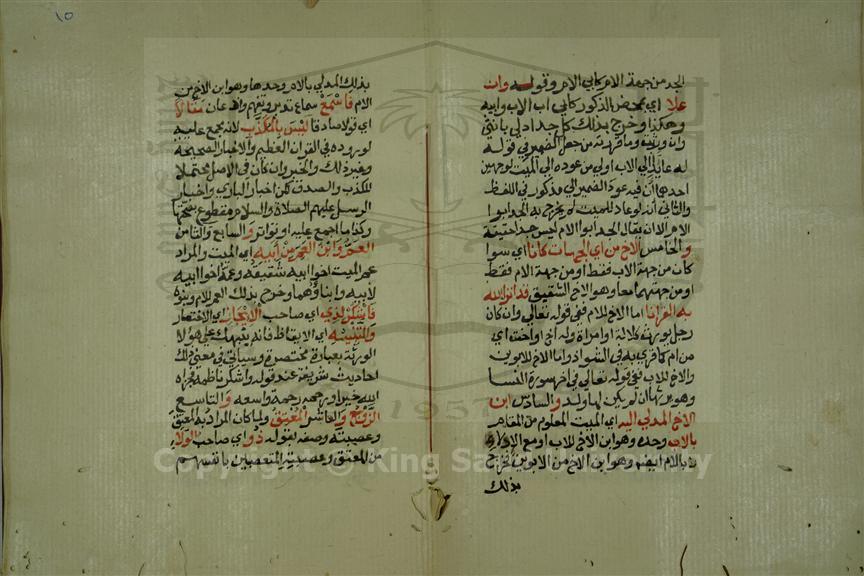 الجد من جهة الام كابي الام وقوله وان
علا اي بمحض الذكور كابي اب الاب وابيه
وهكذا وخرج بذلك كل جد ادلي بانثي
وان ورثته وما قررته من جعل الضمير في قوله
له عايدا الي الاب اولي من عوده الي الميت لوجهين
احدها ان فيه عود الضمير الي مذكور في اللفظ
والثاني انه لو عاد للميت لم يخرج به الجد ابوا
الام الا ان يقال الجد ابوا الام ليس جدا حقيقة
والخامس الاخ من اي الجهات كانا اي سوا
كان من جهة الاب فقط او من جهة الام فقط
او من جهتهما معا وهو الاخ الشقيق قد انزل الله
به القرانا اما الاخ للام ففي قوله تعالي وان كان
رجل يورث كلالة او امراة وله اخ او اخت اي
من ام كما قري به في الشواذ واما الاخ للابوين
والاخ للاب ففي قوله تعالي في اخر سورة النسا
وهو يرثها ان لم يكن لها ولد والسادس ابن
الاخ المدلي اليه اي الميت المعلوم من المقام
بالاب وحده وهو ابن الاخ للاب او مع الادلاء
بالام ايضا وهو ابن الاخ من الابوين فخرج
بذلك
بذلك المدلي بالام وحدها وهو ابن الاخ من
الام فاسمع سماع تدبر وتفهم واذعان مقالا
اي قولا صادقا ليس بالمكذب لانه مجمع عليه
لوروده في القران العظيم والاخبار الصحيحة
وغير ذلك والخبر وان كان في الاصل محتملا
للكذب والصدق لكن اخبار الباري واخبار
الرسل عليهم الصلاة والسلام مقطوع بصحتها
وكذا ما اجمع عليه او تواتر والسابع والثامن
العم وابن العم من ابيه اي الميت والمراد
عم الميت اخوا ابيه شقيقه وعمه اخوا ابيه
لابيه وابناؤهما وخرج بذلك العم للام وبنوه
فاشكر لذي اي صاحب الايجاز اي الاختصار
والتنبيه اي الايقاظ فانه ينبهك علي هؤلا
الورثة بعبارة مختصرة وسياتي في معني ذلك
احاديث شريفة عند قوله واشكر لناظمه فجزاه
الله خيرا ورحمه رحمة واسعه والتاسع
الزوج والعاشر المعتق ولما كان المراد به المعتق
وعصبته وصفه بقوله ذو اي صاحب الولاء
من المعتق وعصبته المتعصبين بانفسهم
١٥
1957
Copyright © King Saud University